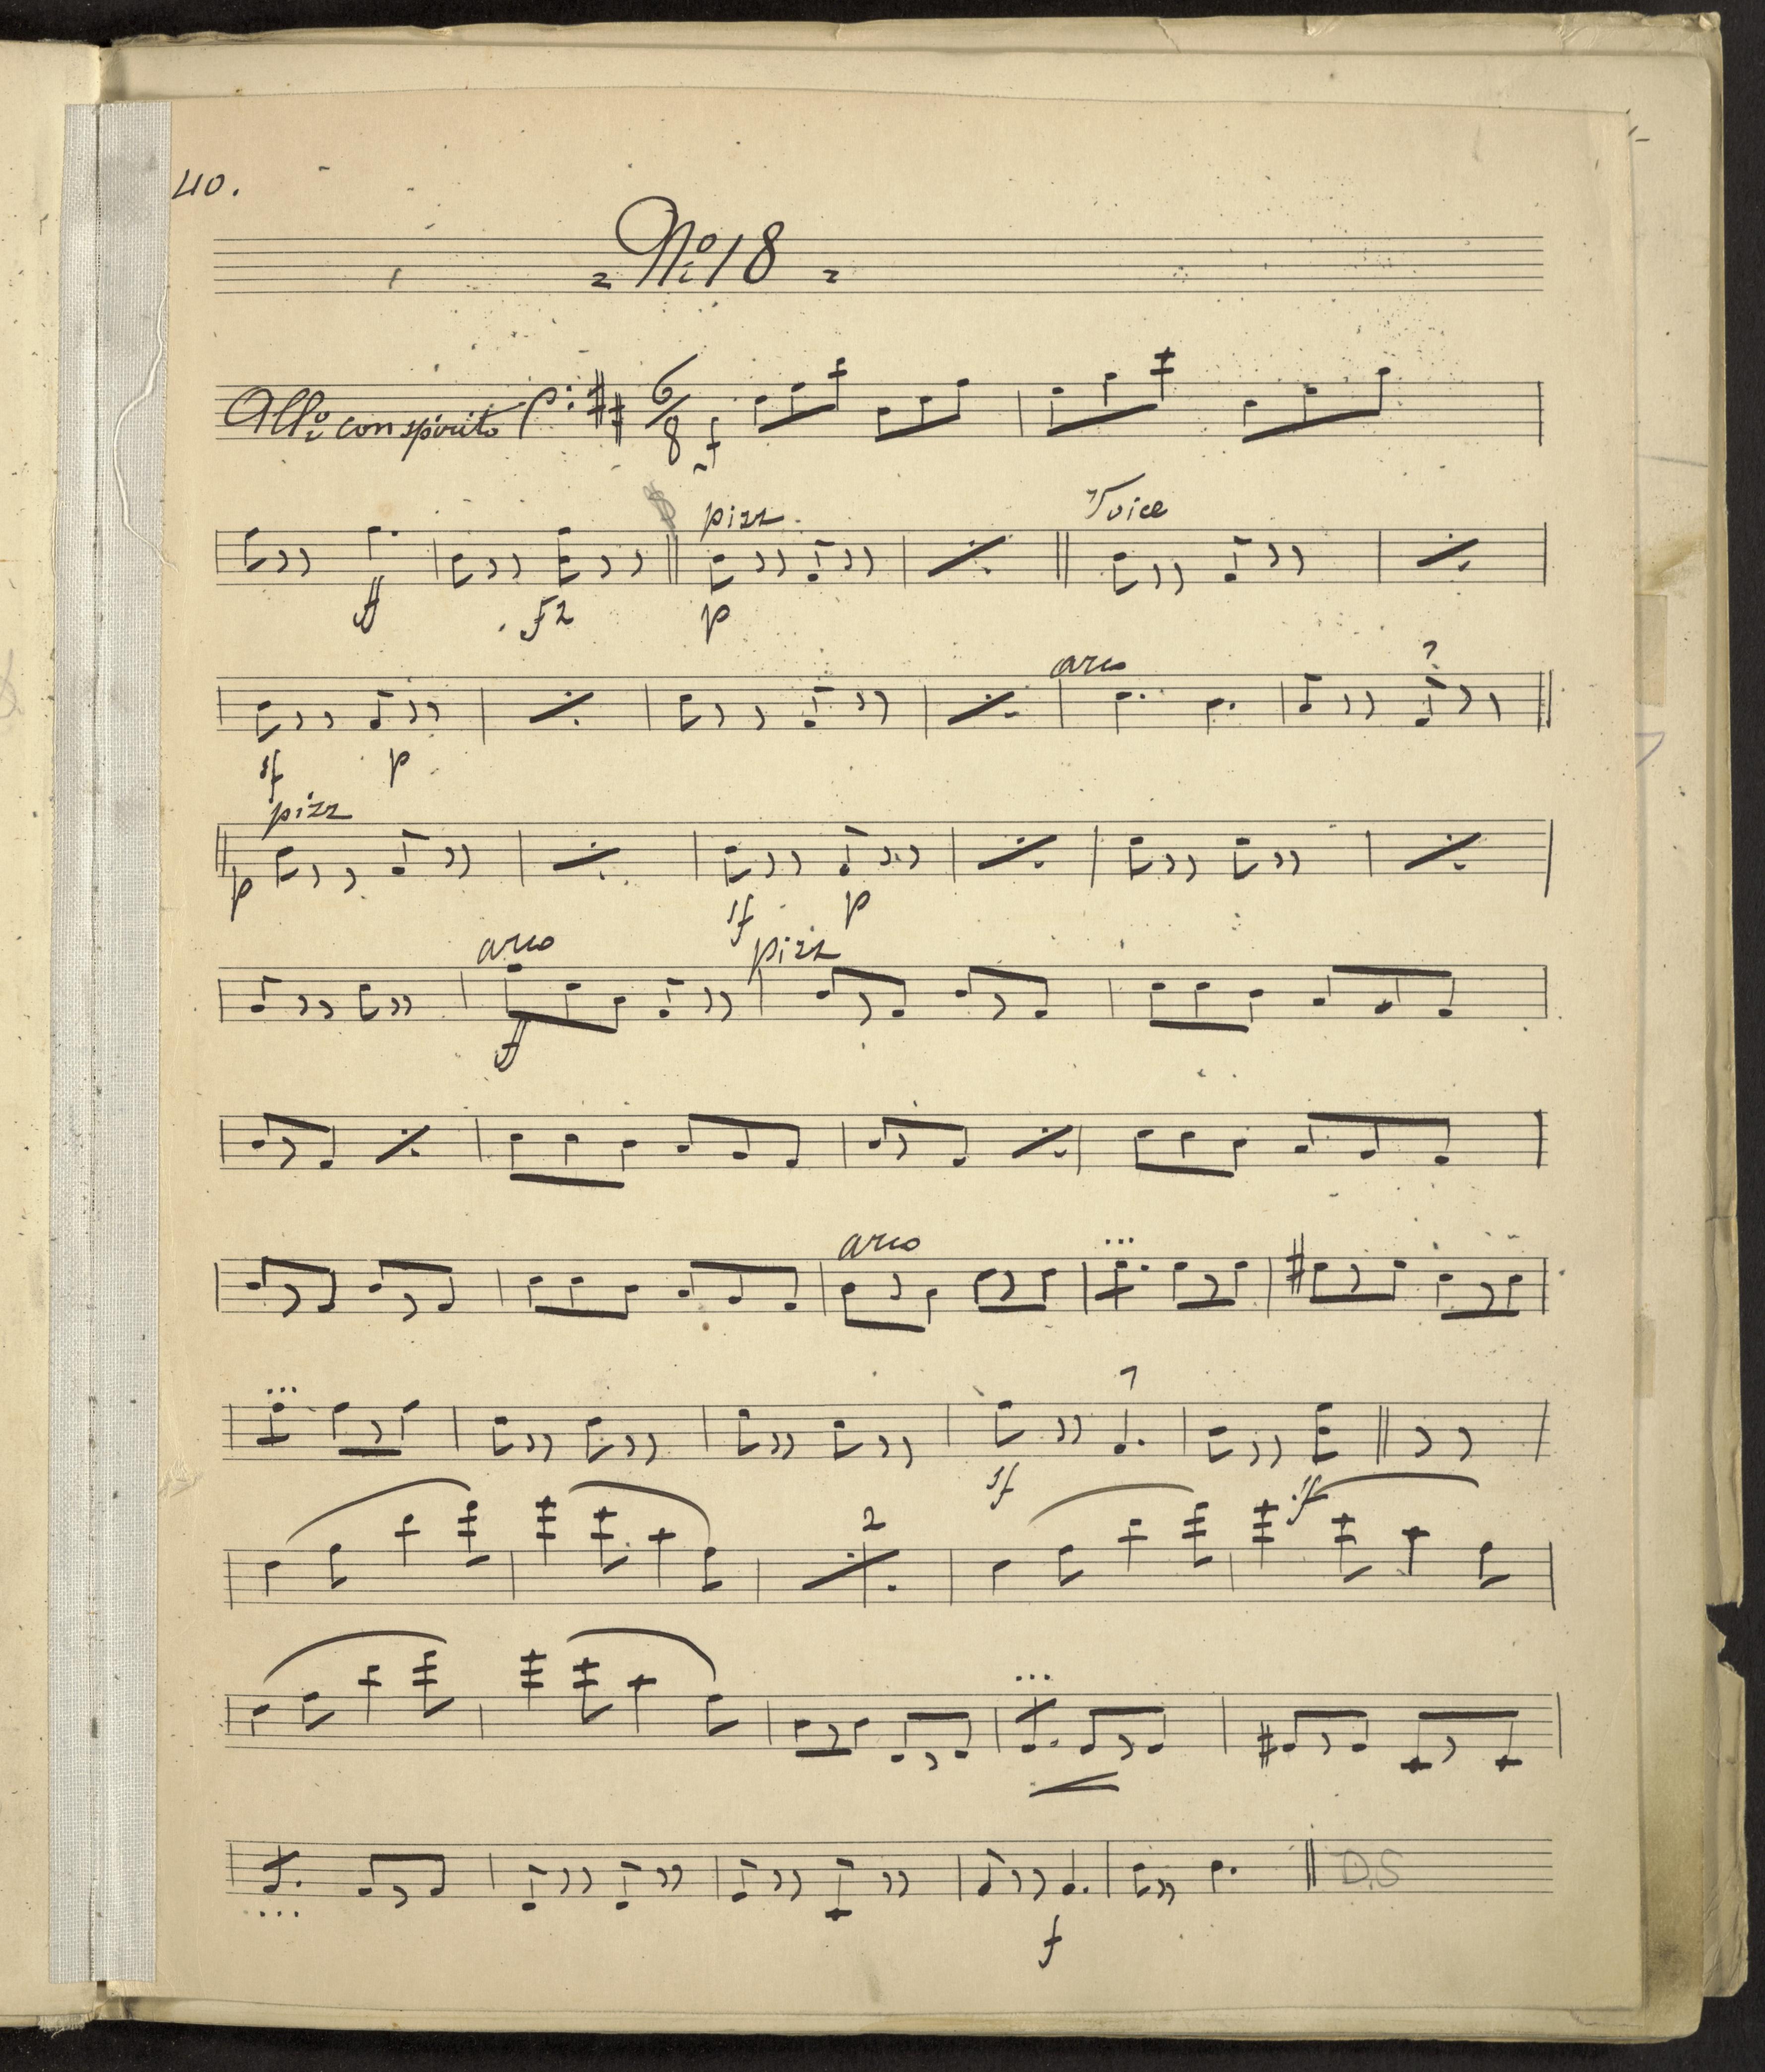 40.
No 18
Allo con spirito 6/8
f
pizz. Voice
ff fz p
arco
sf p
pizz
p sf p
arco pizz
ff
arco
sf
sf
2
f
D.S